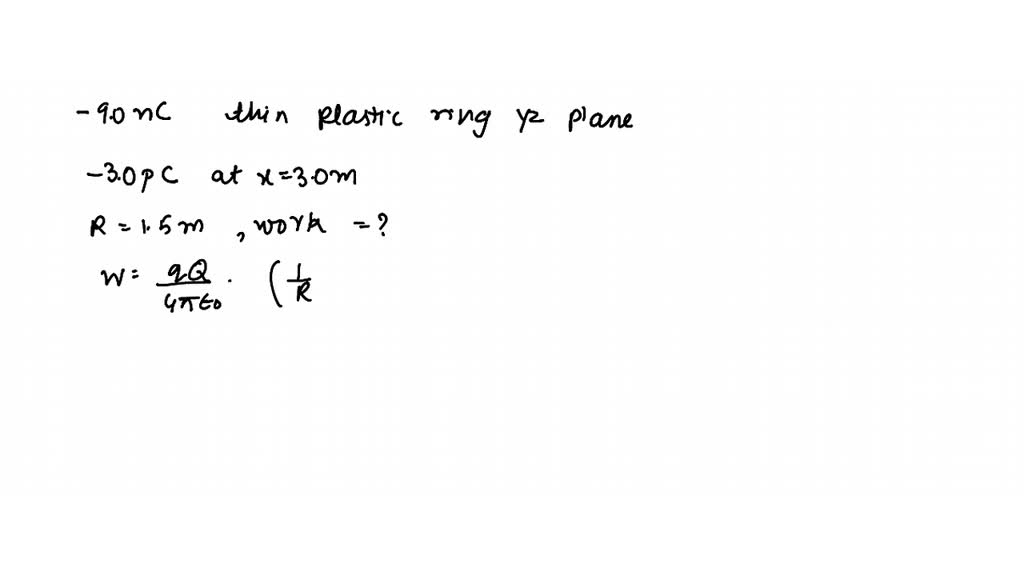 -9.0 nC thin plastic ring yz plane
-3.0 pC at x=3.0m
R = 1.5m , work = ?
W = qQ/4πε0 . (1/R